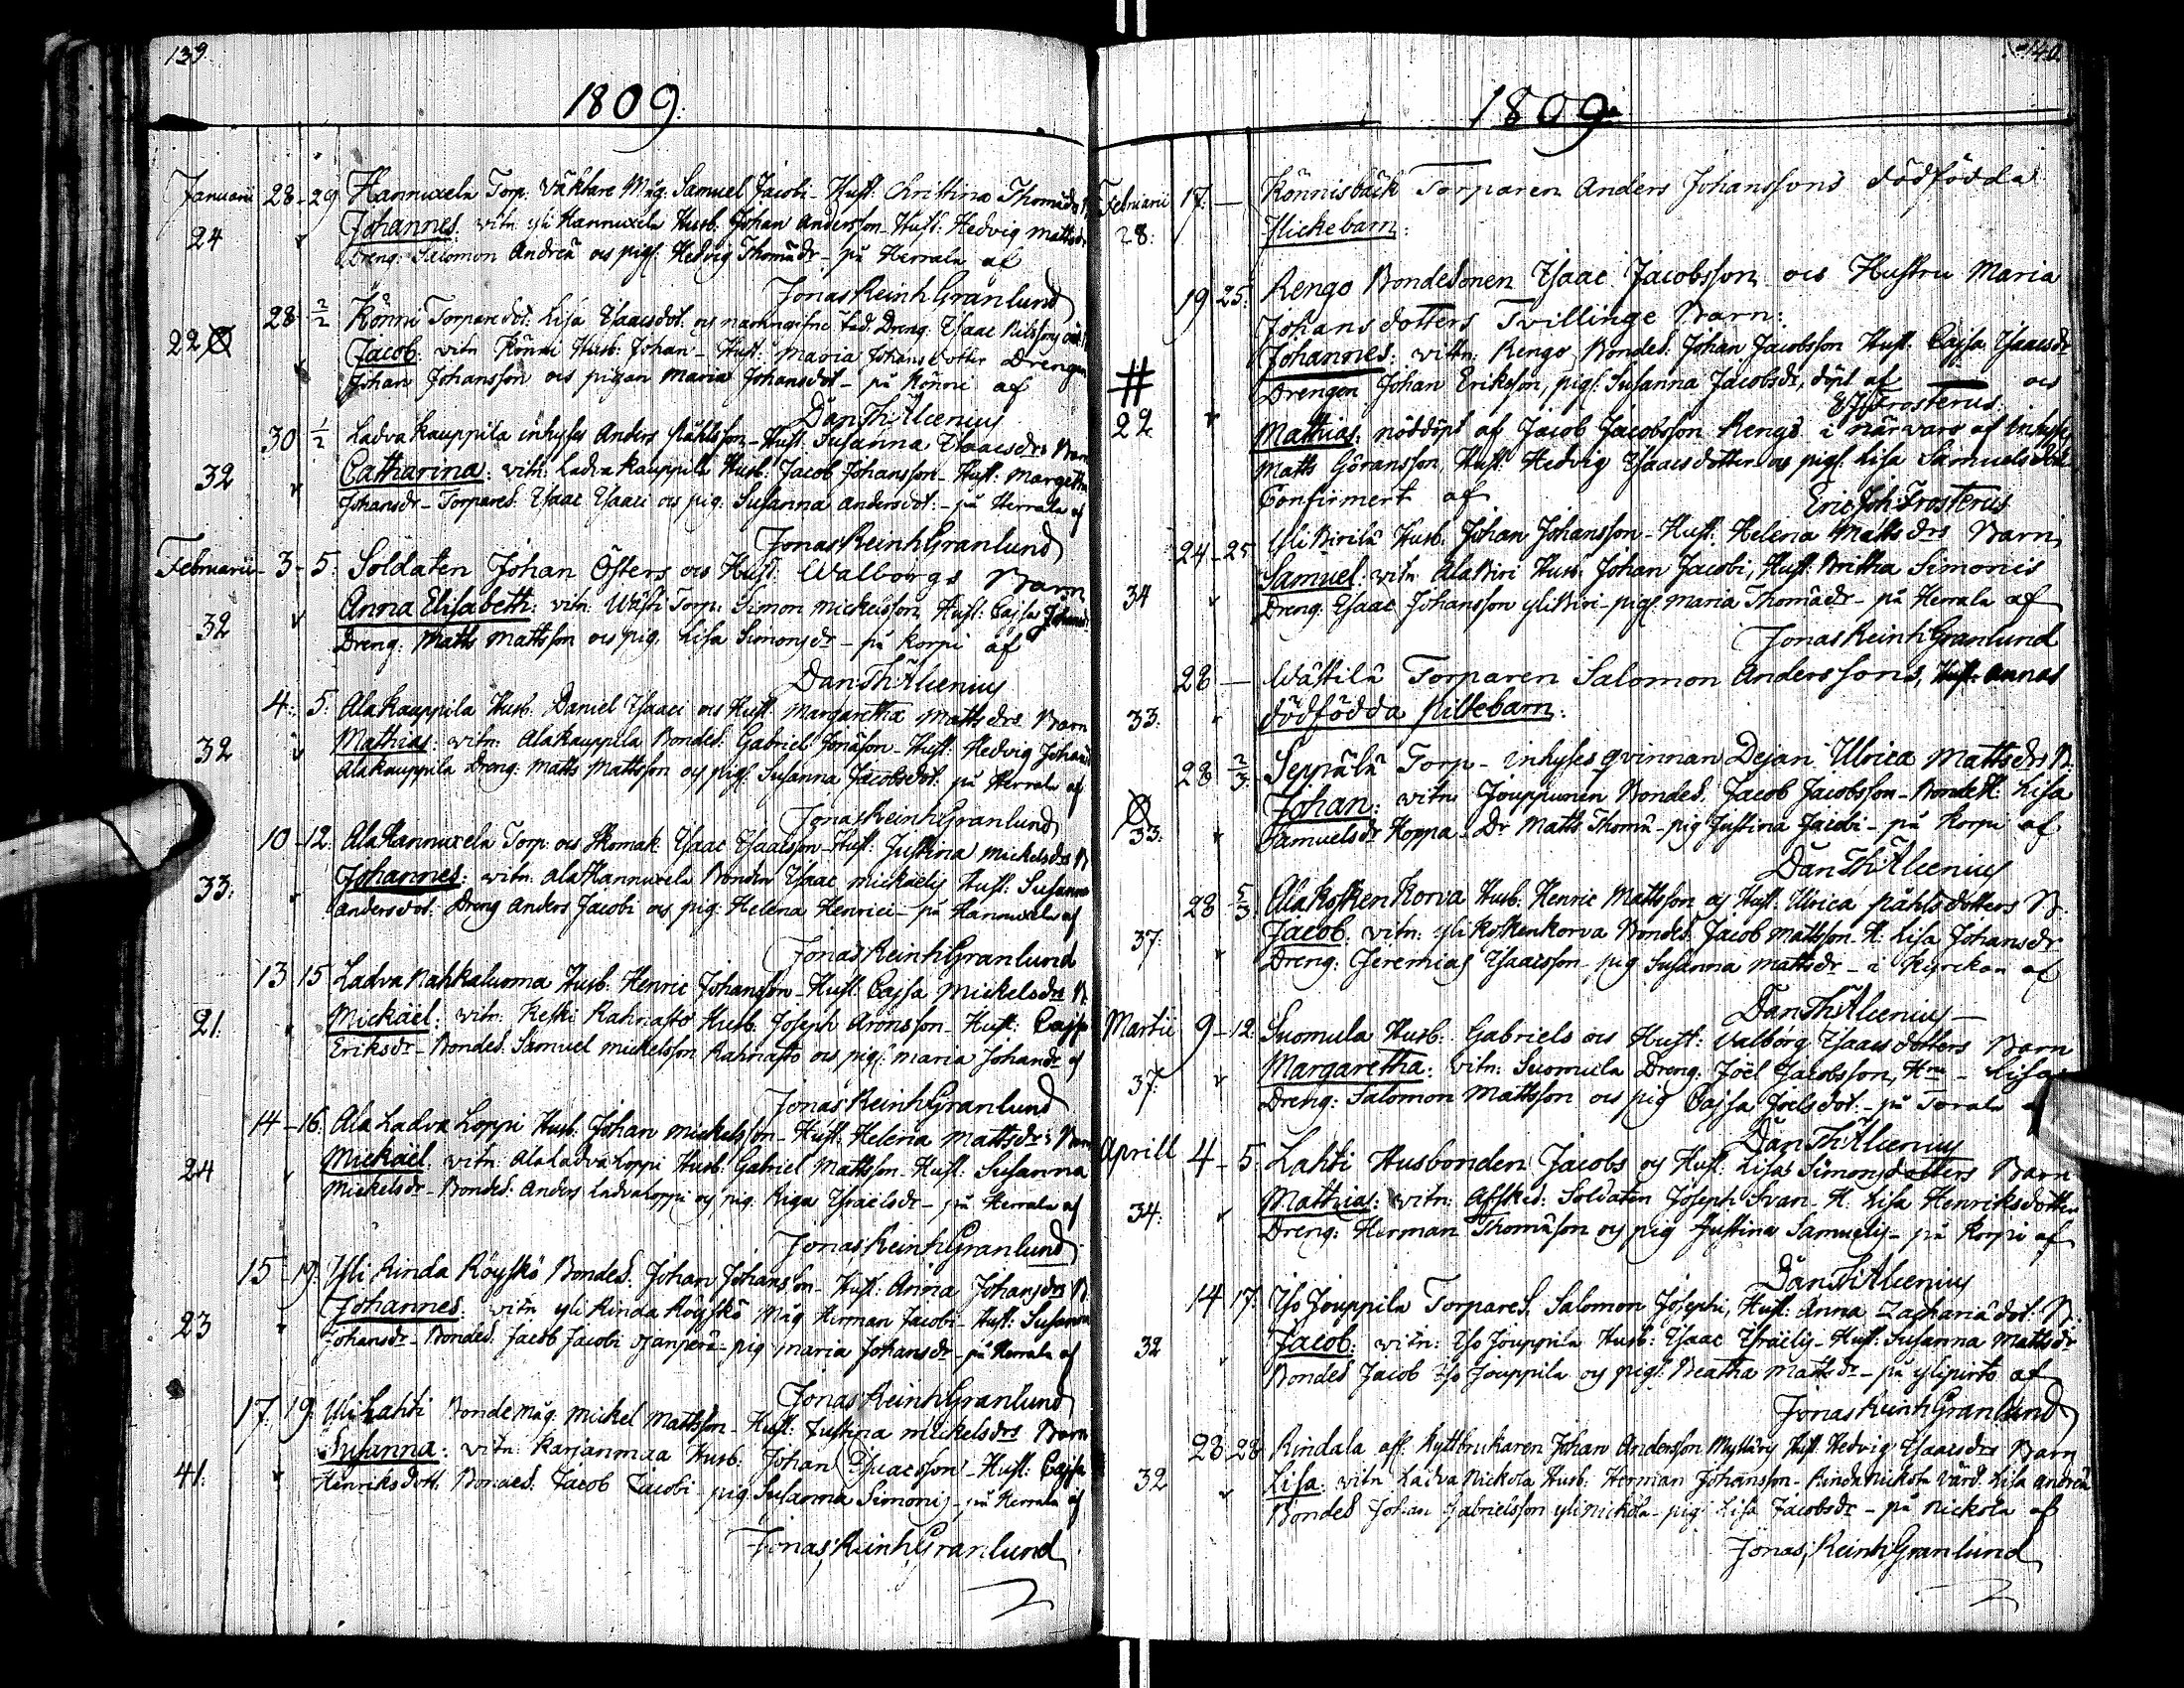 139.
1809.
Januarii 28-29 Hannuxela Torp. Väktare Måg. Samuel Jacobi - Hust. Christina Thomædrs B.
24 Johannes: vitn. yli Hannuxela Husb. Johan Andersson - Hust: Hedvig Mattsdr
Dreng: Salomon Andreæ ock pig: Hedvig Thomædr - på Herrala af
Jonas Reinh Granlund
28 2/2 Könni Torpare dot: Lisa Isaacsdot: och namngifne fad. Dreng. Isaac Nilssons
22 Jacob: vitn Könni Husb: Johan - Hust: Maria Johansdotter Drengen
Johan Johansson ock pigan Maria Johansdot - på Könni af
Dan Th Alcenius
30 1/2 Ladvakauppila inhyses Anders Påhlsson - Hust. Susanna Isaacsdrs Barn
32 Catharina: vitn: Ladva Kauppila Husb: Jacob Johansson - Hust: Margetha
Johansdr - Torpares. Isaac Isaaci ock pig: Susanna Andersdot: - på Herrala af
Jonas Reinh Granlund
Februarii 3-5: Soldaten Johan Östers ock Hust: Walborgs Barn
32 Anna Elisabeth: vitn: Torp: Simon Mickelsson, Hust: Cajsa
Dreng: Matts Mattsson ock pig. Lisa Simonsdr - på Korpi af
Dan Th Alcenius
4. 5. Alakauppila Husb. Daniel Isaaci ock Hust. Margaretha Mattsdrs Barn
32 Mathias: vitn: Alakauppila Bondes: Gabriel Jonæson - Hust. Hedvig
Alakauppila Dreng: Matts Mattsson och pig: Susanna Jacobsdot: på Herrala af
Jonas Reinh Granlund
10-12. Ala Hannuxela Torp: ock Skomak. Isaac Isaacsson - Hust: Justina Mickelsdrs B
33: Johannes: vitn: Ala Hannuxela Bonden Isaac Mickaelis Hust: Susanna
Andersdot: Dreng Anders Jacobi ock pig: Helena Henrici - på Hannuxela af
Jonas Reinh Granlund
13 15 Ladva Nahkaluoma Husb. Henric Johansson - Hust. Cajsa Mickelsdrs B
21. Mickäel: vitn: Keski Rahnasto Husb. Joseph Aronsson - Hust: Cajsa
Eriksdr - Bondes. Samuel Mickelsson Rahnasto ock pig: Maria Johansdr af
Jonas Reinh Granlund
14-16. Ala Ladva Loppi Husb. Johan Mickelsson - Hust. Helena Mattsdrs Barn
24 Mickäel: vitn: Ala Ladva Loppi Husb: Gabriel Mattsson - Hust. Susanna
Mickelsdr - Bondes: Anders Ladvaloppi och pig. Israelsdr - på Herrala af
Jonas Reinh Granlund
15-19. Yli Rinda Röyskö Bondes. Johan Johansson - Hust: Anna Johansdrs B
23 Johannes: vitn yli Rinda Röyskö Måg Herman Jacobi - Hust: Susanna
Johansdr - Bondes. Jacob Jacobi - pig Maria Johansdr - på Herrala af
Jonas Reinh Granlund
17. 19. Uli Lahti Bondemåg. Mickel Mattsson - Hust: Justina Mickelsdrs Barn
41: Susanna: vitn: Karjanmaa Husb: Johan Isaacsson - Hust: Cajsa
Henriksdott. Bondes. Jacob Jacobi pig Susanna Simonis - på Herrala af
Jonas Reinh Granlund
140.
1809.
Februarii 17. - Könnisbäck Torparen Anders Johanssons dödfödda
28: Flickebarn.
19 25. Rengo Bondesonen Isaac Jacobsson ock Hustru Maria
Johansdotters Tvillinge Barn:
# Johannes: vittn: Rengo Bondes: Johan Jacobsson Hust. Cajsa Isaacsdr
Drengen Johan Eriksson, pig: Susanna Jacobsdr, döpt af ock
EJFrosterus.
22 Mathias: nöddöpt af Jacob Jacobsson Rengo i närvaro af Inhyses
Matts Göransson, Hust: Hedvig Isaacsdotter och pig: Lisa Samuelsdot
Confirmert af Eric Joh: Frosterus
24-25 Yli Birilä Husb. Johan Johansson - Hust: Helena Mattsdrs Barn
34 Samuel: vitn: Ala Biri Husb. Johan Jacobi, Hust. Britha Simonis
Dreng. Isaac Johansson yliBiri - pig: Maria Thomædr - på Herrala af
Jonas Reinh Granlund
28 - Wästilä Torparen Salomon Anderssons, Hust: Annas
33. dödfödda piltebarn.
28 2/3. Seppälä Torp - inhyses qvinnan Dejan Ulrica Mattsdrs B.
33. Johan: vitn Jouppunen Bondes. Jacob Jacobsson - Lisa
Samuelsdr Koppa - Dr Matts Thomæ - pig Justina Jacobi - på Korpi af
Dan Th Alcenius
28 5/3. Ala Koskenkorva Husb. Henric Mattsson och Hust. Ulrica Påhlsdotters B.
37. Jacob: vitn: yli Koskenkorva Bondes. Jacob Mattsson - H. Lisa Johansdr
Dreng: Jeremias Isaacsson - pig Susanna Mattsdr - i Kyrckan af
Dan Th Alcenius
Martii 9-12. Suomula Husb: Gabriels ock Hust: Valborg Isaacsdotters Barn
37. Margaretha: vitn: Suomula Dreng: Joël Jacobsson, - Lisa
Dreng: Salomon Mattsson ock pig Cajsa Joelsdot - på
Dan Th Alcenius
Aprill 4-5. Lahti Husbonden Jacobs och Hust. Lisas Simonsdotters Barn
34. Mathias: vitn: Afsked: Soldaten Joseph Svan - H. Lisa Henriksdotter
Dreng: Herman Thomæson och pig Justina Samuelis - på Korpi af
Dan Th Alcenius
14 17. Iso Jouppila Torpares. Salomon Josephi, Hust: Anna Zachariædot: B.
32 Jacob: vitn: Iso Jouppila Husb: Isaac Israelis - Hust: Susanna Mattsdr
Bondes Jacob Iso Jouppila och pig: Beatha Mattsdr - på ylipirto af
Jonas Reinh Granlund
23-28. Rindala aff. Kyttbrukaren Johan Andersson Hust. Hedvig Isaacsdrs Barn
32 Lisa: vitn Ladva Nickola Husb: Herman Johansson - Rinda Nickola värd. Lisa Andreæ
Bondes Johan Gabrielsson yli Nickola - pig Lisa Jacobsdr - på Nickola af
Jonas Reinh Granlund